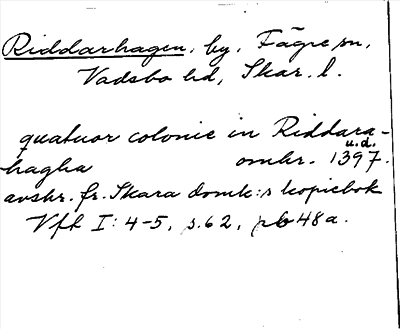 Riddarhagen, by, Fägre sn,
Vadsbo hd, Skar. l.
quatuor colonie in Riddara-
hagha omkr. 1397. u.d.
avskr. fr. Skara domk:s kopiebok
Vft I: 4-5, s. 62, pb 48a.